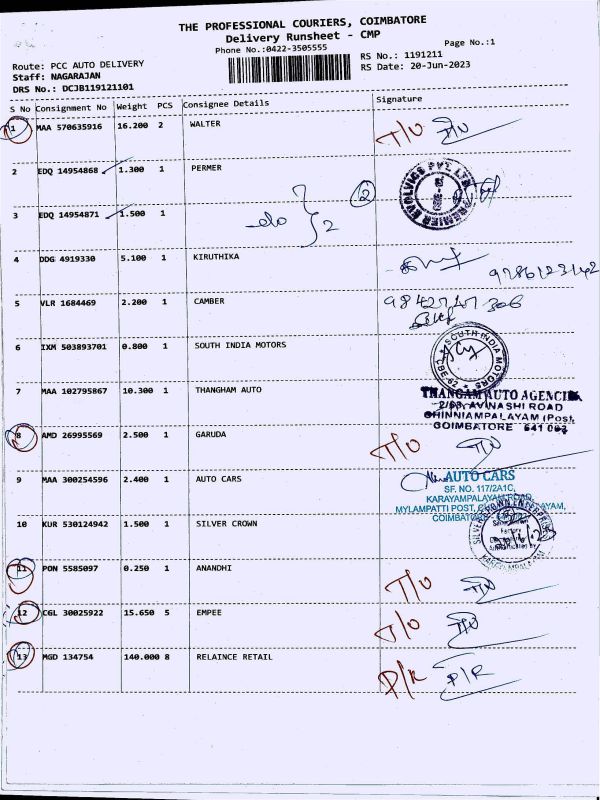 THE PROFESSIONAL COURIERS, COIMBATORE
Delivery Runsheet - CMP
Phone No.:0422-3505555
Page No.:1
Route: PCC AUTO DELIVERY
RS No.: 1191211
Staff: NAGARAJAN
RS Date: 20-Jun-2023
DRS No.: DCJB119121101
S No Consignment No Weight PCS Consignee Details Signature
1 MAA 570635916 16.200 2 WALTER T/U T/U
2 EDQ 14954868 1.300 1 PERMER
PREMIER EVOLVICS PVT LTD
3 EDQ 14954871 1.500 1 -do 2 2
4 DDG 4919330 5.100 1 KIRUTHIKA 9786123142
5 VLR 1684469 2.200 1 CAMBER
6 IXM 503893701 0.800 1 SOUTH INDIA MOTORS
SOUTH INDIA MOTORS
CBE-62
7 MAA 102795867 10.300 1 THANGHAM AUTO
THANGAM AUTO AGENCIES
2/93, AVINASHI ROAD
CHINNIAMPALAYAM (Post),
COIMBATORE 641 062
8 AMD 26995569 2.500 1 GARUDA T/U T/U
9 MAA 300254596 2.400 1 AUTO CARS
AUTO CARS
SF. NO. 117/2A1C,
KARAYAMPALAYAM ROAD,
MYLAMPATTI POST,
COIMBATORE
10 KUR 530124942 1.500 1 SILVER CROWN
SILVER CROWN ENTERPRISE
KARAYAMPALAYAM
11 PON 5585097 0.250 1 ANANDHI T/U T/U
12 CGL 30025922 15.650 5 EMPEE T/U T/U
13 MGD 134754 140.000 8 RELAINCE RETAIL P/R P/R